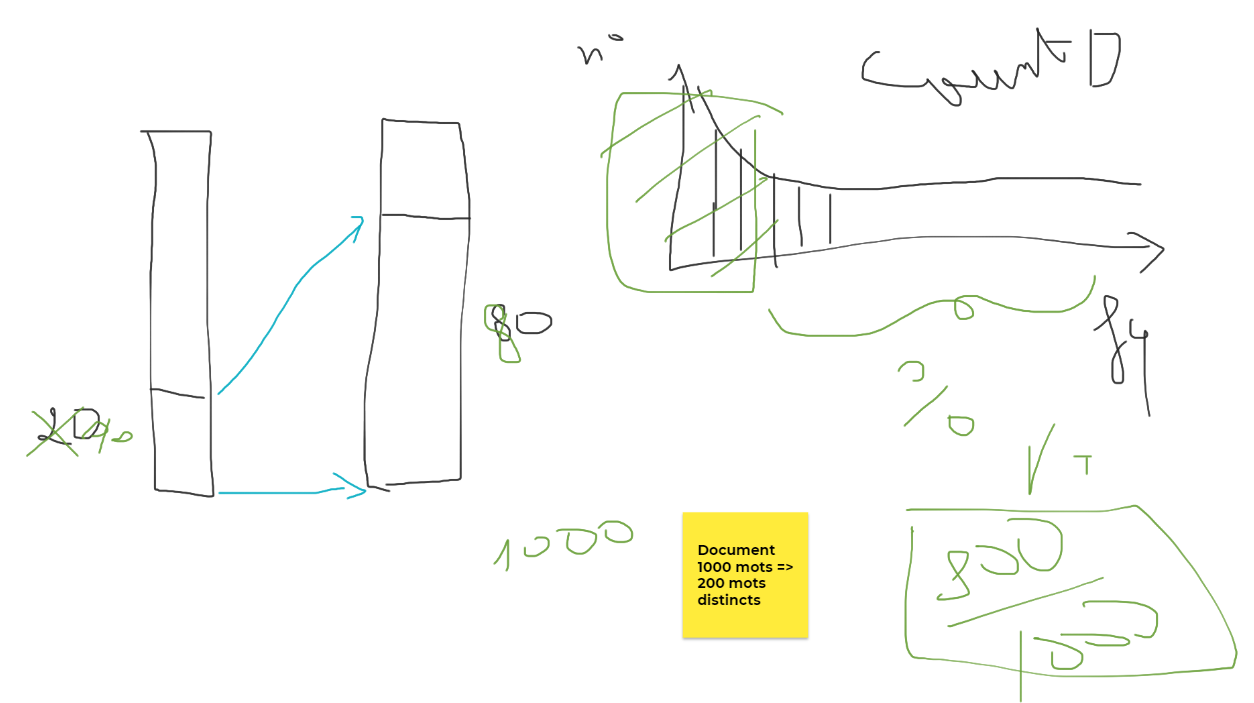 n°
Count D
80
20%
%
T
1000
Document
1000 mots =>
200 mots
distincts
800
1000